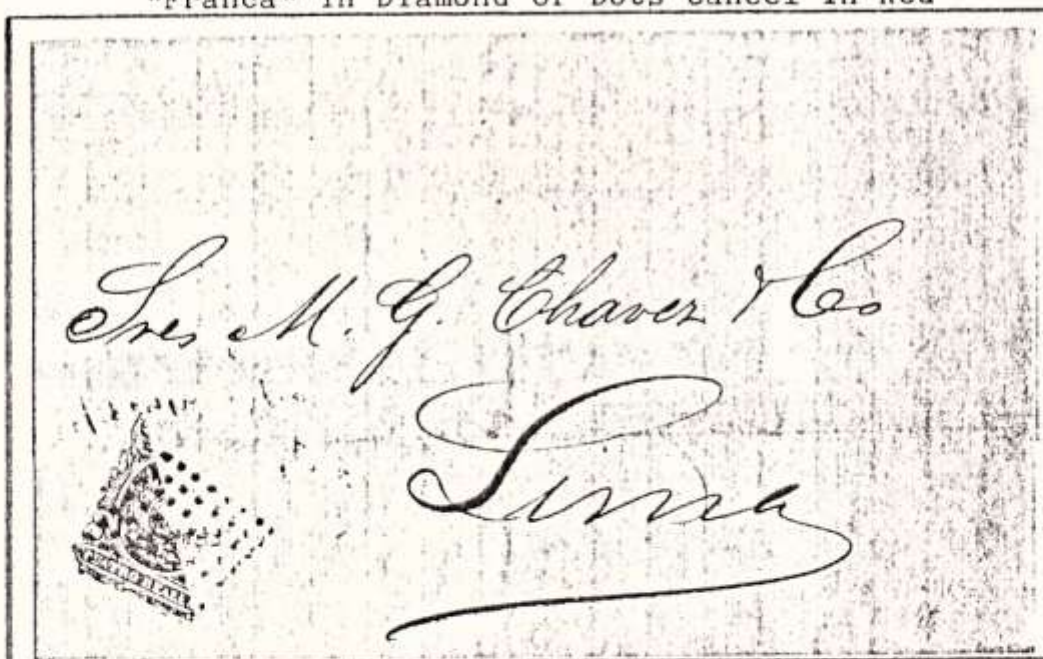 "Franca" in Diamond of Dots Cancel in Red
Sres M. G. Chavez & Co
Lima